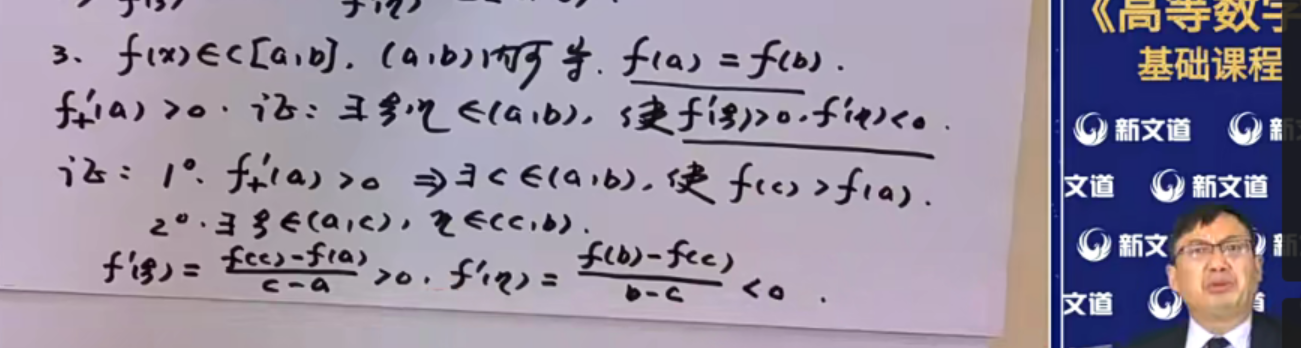 3、f(x)∈C[a,b]. (a,b)内可导. f(a)=f(b).
f₊'(a)>0. 证:∃ξ,η∈(a,b), 使f'(ξ)>0,f'(η)<0.
证:1°. f₊'(a)>0 ⇒∃c∈(a,b), 使 f(c)>f(a).
2°.∃ξ∈(a,c), η∈(c,b).
f'(ξ)=(f(c)-f(a))/(c-a)>0, f'(η)=(f(b)-f(c))/(b-c)<0.
《高等数学
基础课程
新文道 新
文道 新文道
新文
文道